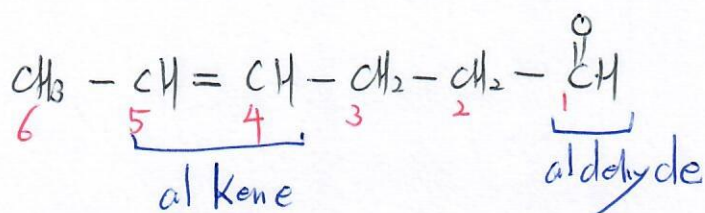 O
CH3 - CH = CH - CH2 - CH2 - CH
6 5 4 3 2 1
alkene aldehyde